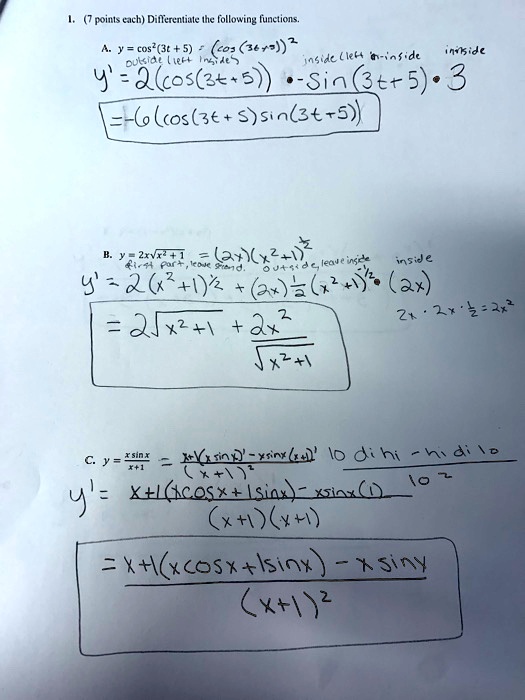 1. (7 points each) Differentiate the following functions.
A. y = cos²(3t + 5) = (cos (3t+5))²
outside (left insides) inside (left in-inside inside
y' = 2(cos(3t+5)) • -Sin(3t+5) • 3
=-6(cos(3t+5)sin(3t+5))
B. y = 2x√x² + 1 = (2x)(x²+1)^½
first part, leave second. outside, leave inside inside
y' = 2(x²+1)^½ + (2x)½(x²+1)^-½ • (2x)
2x · 2x · ½ = 2x²
= 2√x²+1 + 2x²/√x²+1
C. y = x sin x/x+1 = x+1(x sinx)' - xsinx(x+1)'/(x+1)² lo di hi - hi di lo/lo²
y' = x+1(xcosx+1sinx) - xsinx(1)/(x+1)(x+1)
= x+1(xcosx+1sinx) - x sinx/(x+1)²